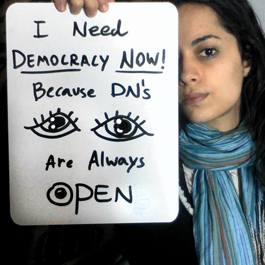 I Need
DEMOCRACY NOW!
Because DN's
Are Always
OPEN